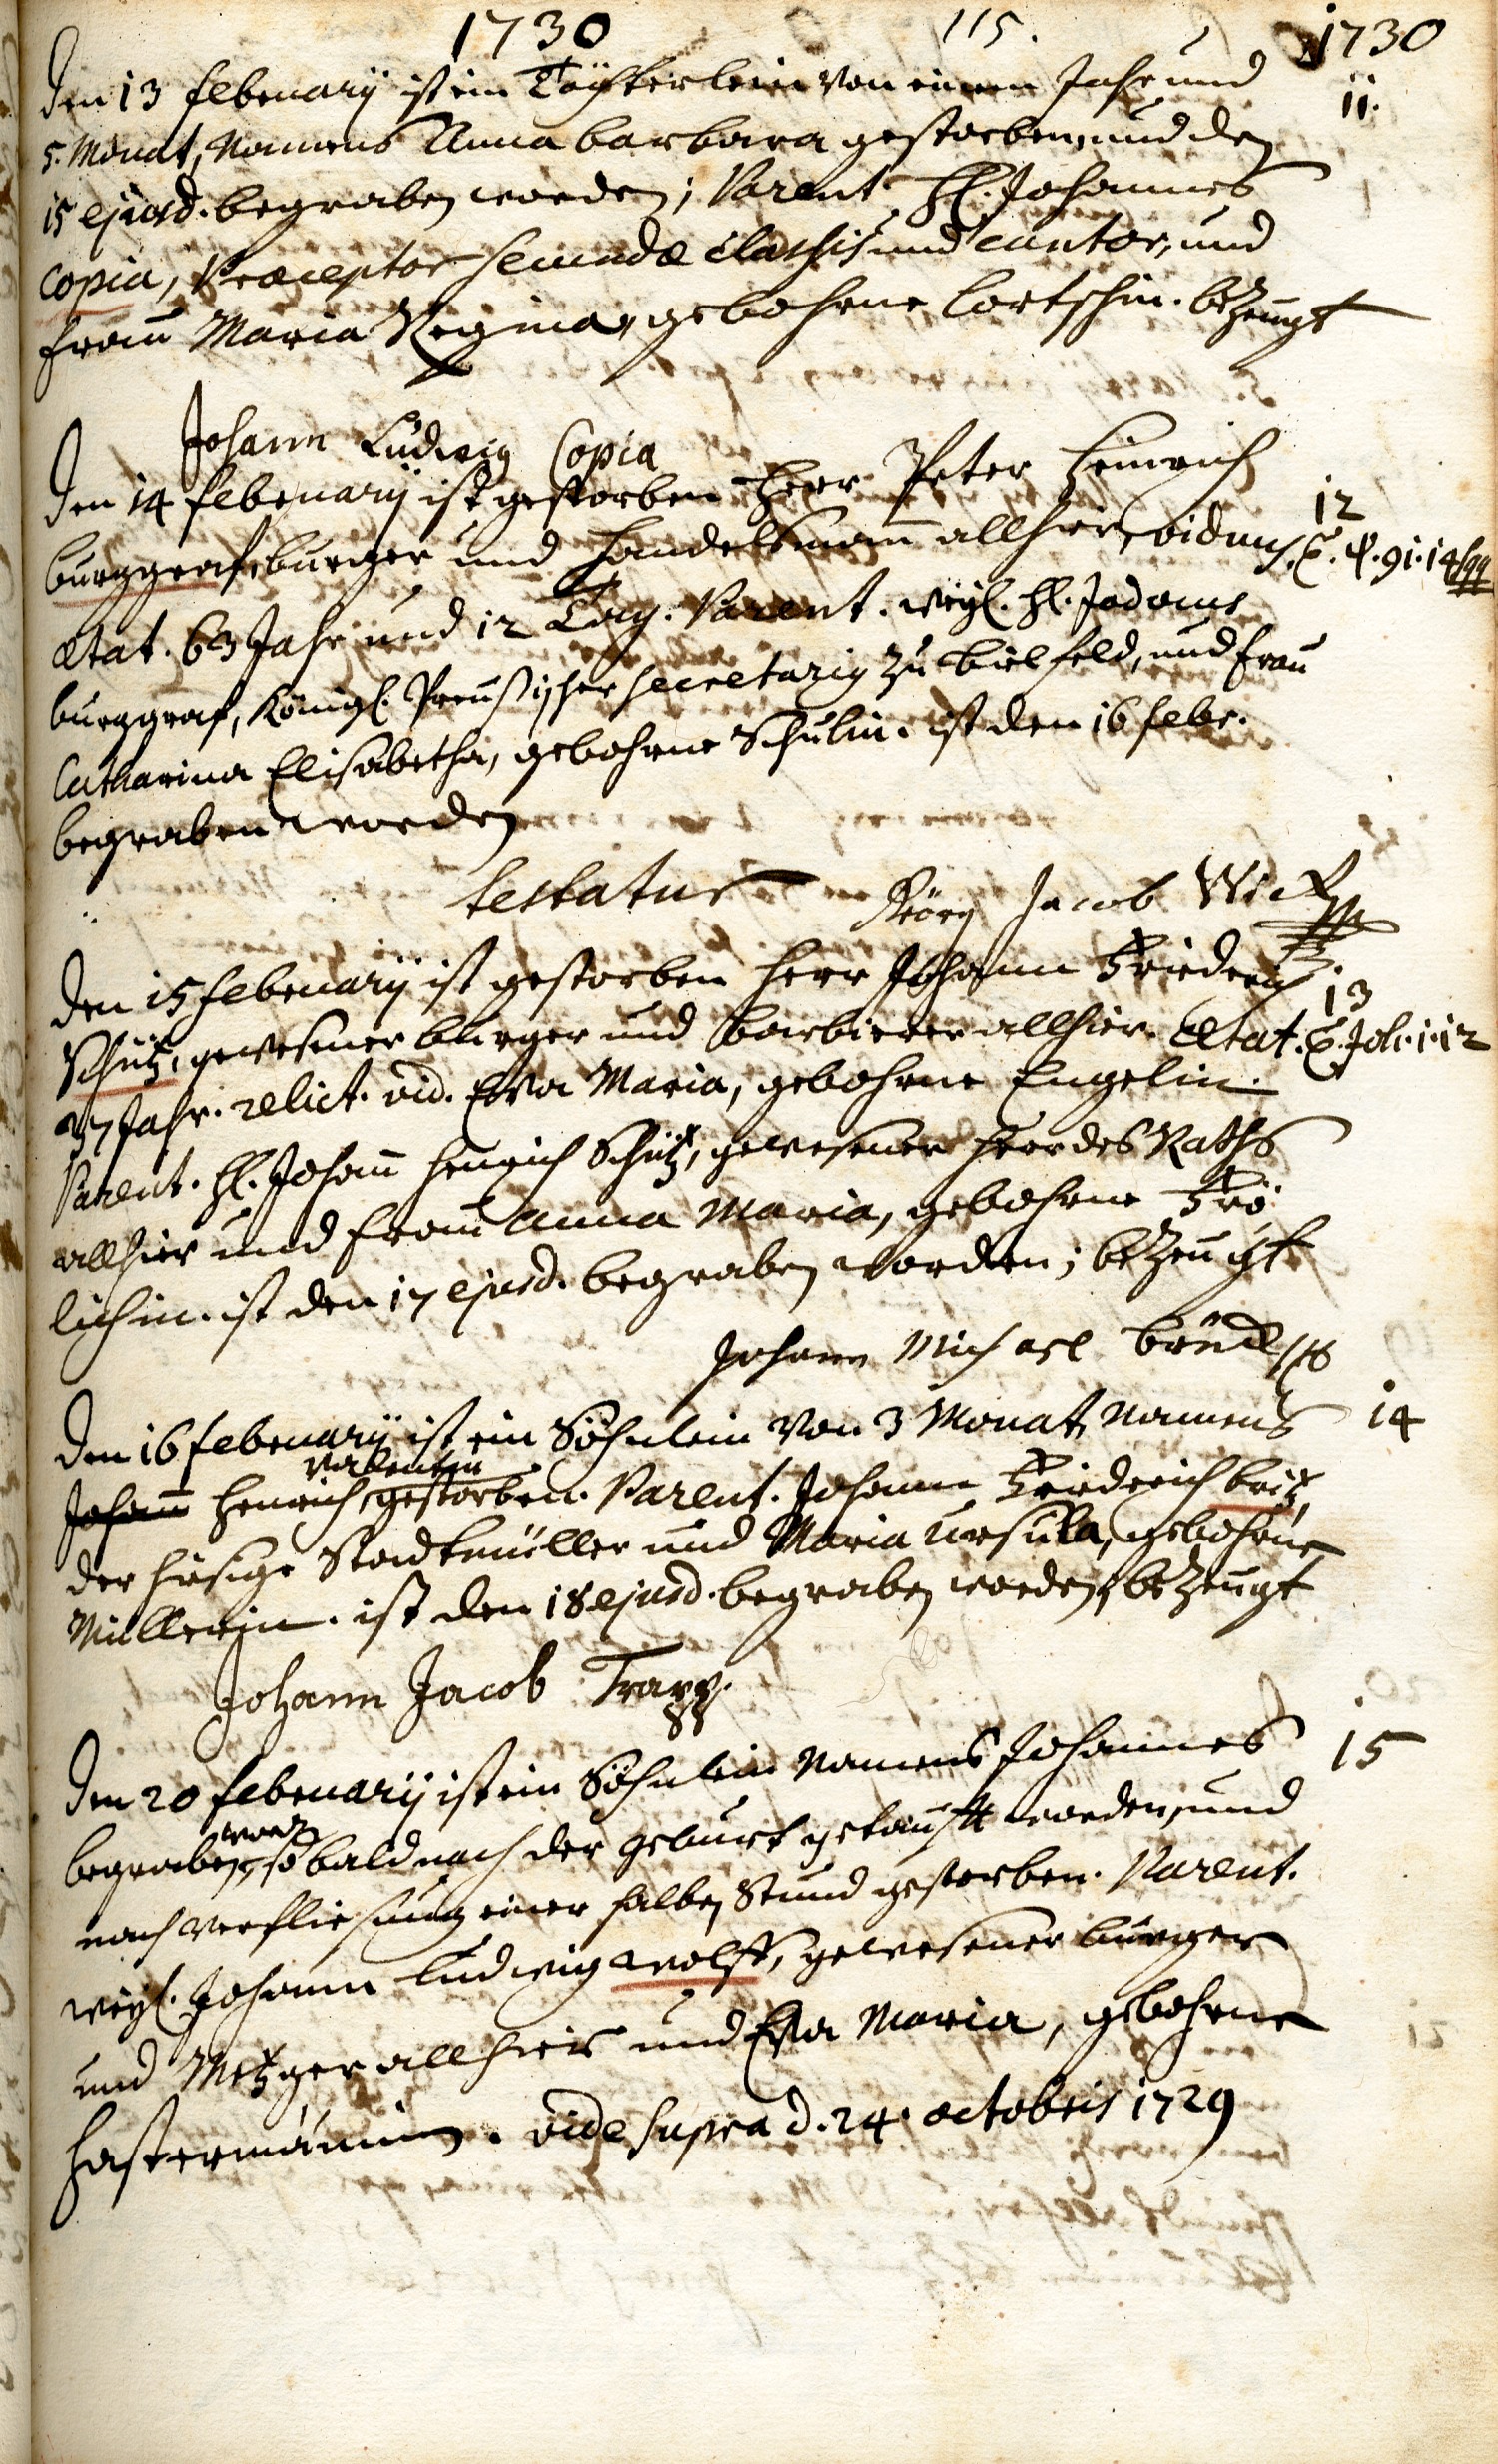 1730 115. 1730
Den 13 februarij ist ein Töchterlein von einem Jahr und 11.
5. Monat, Namens Anna barbara gestorben, und den
15 ejusd. begraben worden; Parent. H. Johannes
Copia, Præceptor secundæ classis und Cantor, und
Frau Maria Regina, gebohrne Cortschin. bezeugt
Johann Ludwig Copia
Den 14 februarij ist gestorben Herr Peter Heinrich 12
burggraf, burger und Handelsmann allhier, viduus. T. ψ. 91. 14 sqq
ætat. 63 Jahr und 12 Tag. Parent. weyl. H. Jodocus
burggraf, Königl. Preussischer Secretariy zu Bielfeld, und Frau
Catharina Elisabetha, gebohrne Schulin. ist den 16 febr.
begraben worden
testatur Geörg Jacob Wick
Den 15 februarij ist gestorben Herr Johann Friederich 13
Schütz, gewesener burger und barbierer allhier. Ætat. T. Joh. 1. 12
27 Jahr. relict. vid. Eva Maria, gebohrne Engelin.
Parent. H. Johann Henrich Schütz, gewesener Herr des Raths
allhier und Frau Anna Maria, gebohrne Frö
lichin. ist den 17 ejusd. begraben worden; bezeugt
Johann Michael
Den 16 februarij ist ein Söhnlein von 3 Monat, Namens 14
Valentin
Johann Henrich, gestorben. Parent. Johann Friederich britz,
der hiesige Stadtmüller und Maria Ursula, gebohrne
Müllerin. ist den 18 ejusd. begraben worden, bezeugt
Johann Jacob Trapp.
Den 20 februarij ist ein Söhnlein Namens Johannes 15
word
begraben, so bald nach der geburt getaufft worden, und
nach Verfliesung einer halben Stund gestorben. Parent.
weyl. Johann Ludwig Wolff, gewesener burger
und Metzger allhier und Eva Maria, gebohrne
Hastermännin. vide supra d. 24. octobris 1729